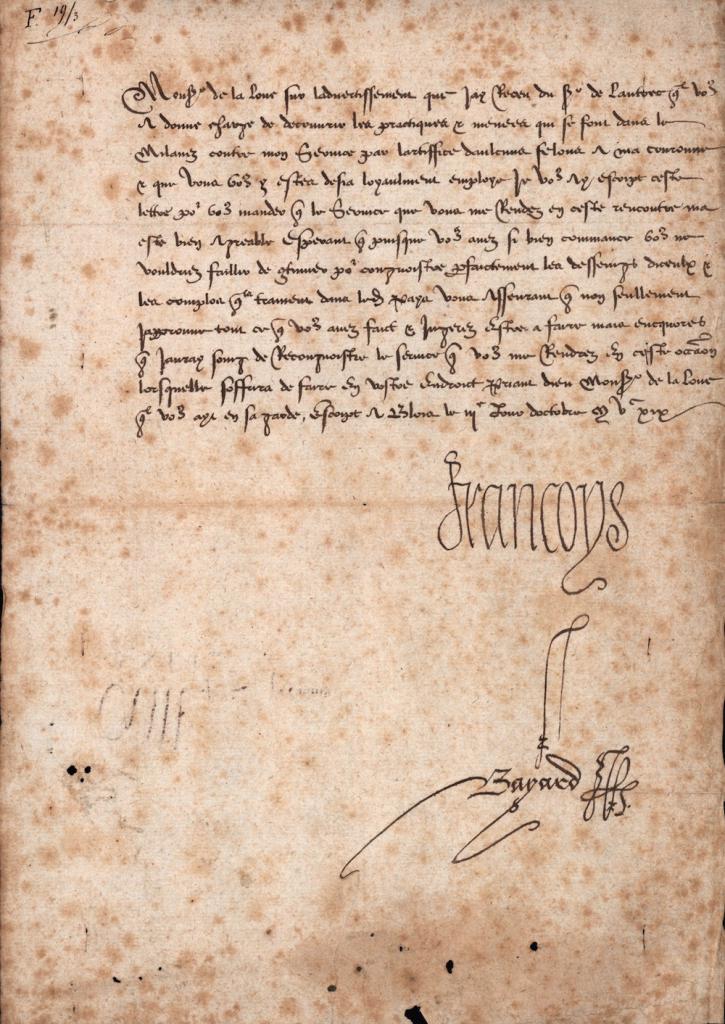 F. 19/3
Mons.r de la Loue sur ladvertissement que Jay Receu du S.r de Lautrec q vo9
A donne charge de decouvrir les practiques & menees qui se font dans le
Milanez contre mon Service par lartiffice daulcuns felons A ma couronne
& que vous vo9 y estes desia loyaulment employe Je vo9 Ay escript ceste
lettre po.r vo9 mander q le Service que vous me Rendez en ceste rencontre ma
este bien Agreable Esperant q puisque vo9 avez si bien commance vo9 ne
vouldriez faillir de 9tinuer po.r congnoistre pfaictement les desseings diceulx &
les complos q trament dans led. Pays vous Asseurant q non seullement
Japprouve tout ce q vo9 avez faict & Jugerez Estre a faire mais encquores
q Jauray soing de Recongnoistre le service q vo9 me Rendrez En ceste occaon
lorsquelle soffrira de faire En vostre Endroict Priant dieu Mons.r de la Loue
q vo9 ayt en sa garde, Escript A Blois le iij.e Jour doctobre M V.c xix
Francoys
Bayard